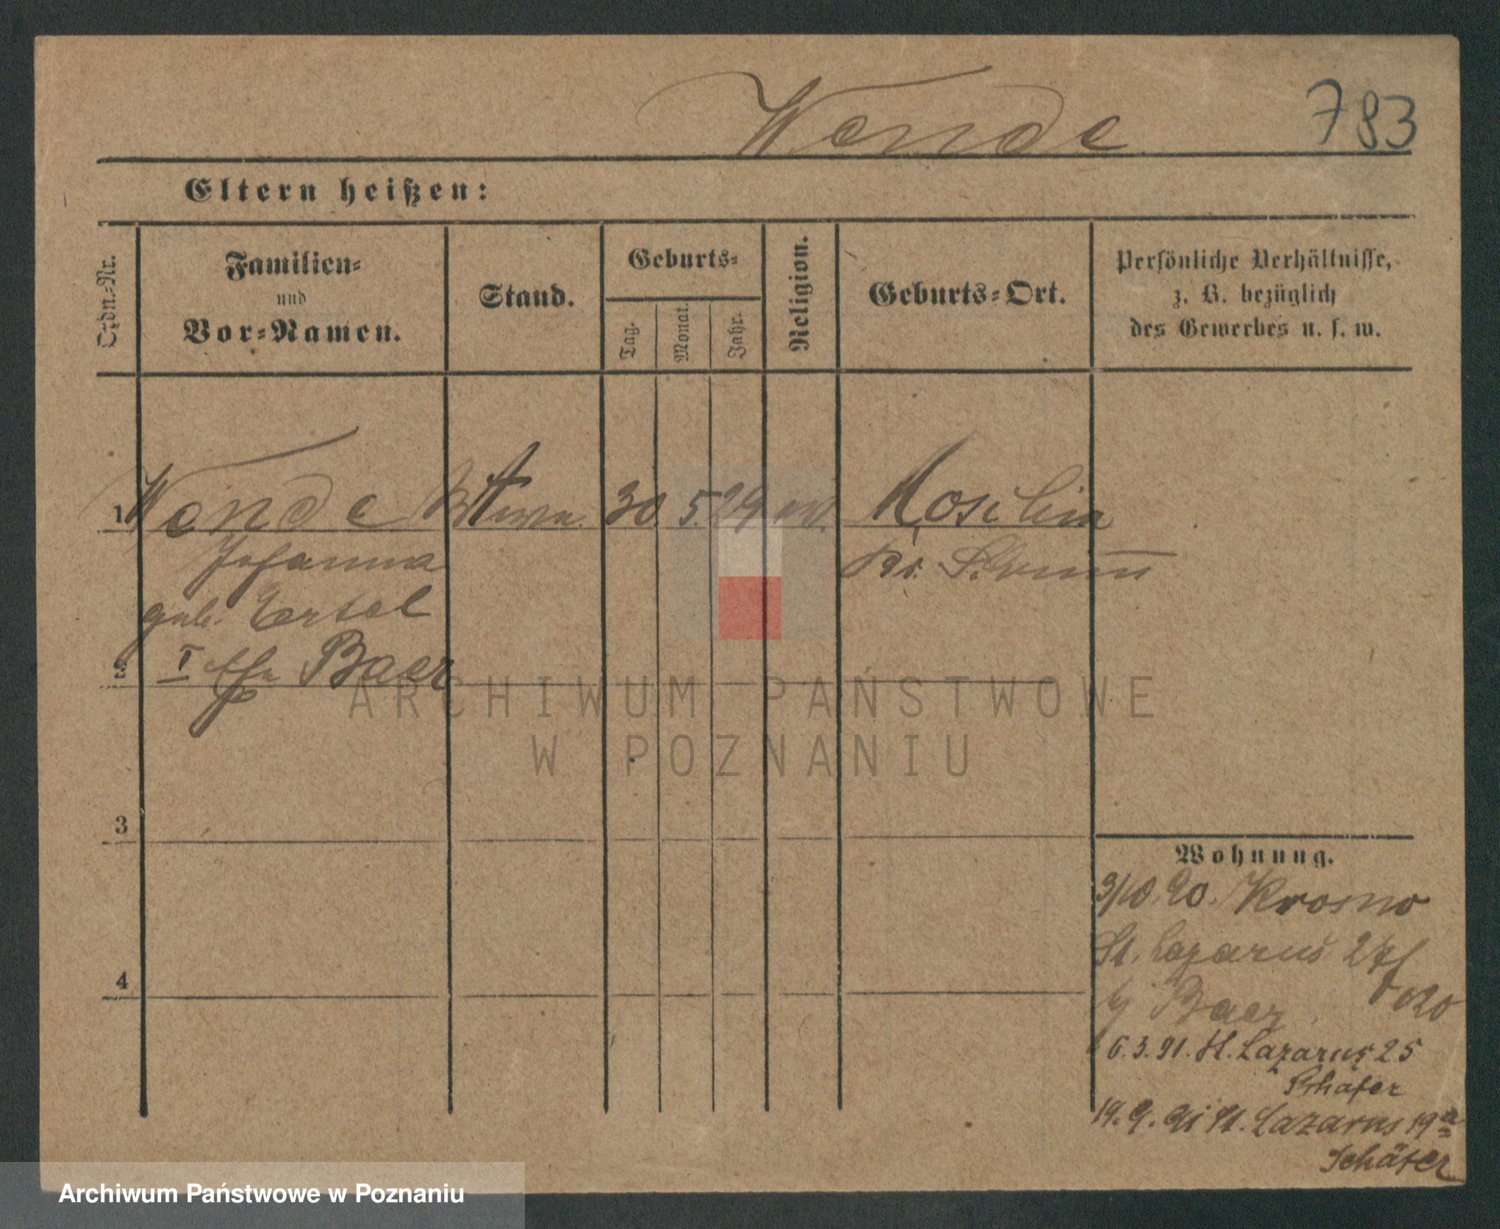 Wende 783
Eltern heißen:
Ordn.-Nr.
Familien-
und
Vor-Namen.
Stand.
Geburts-
Tag.
Monat.
Jahr.
Religion.
Geburts-Ort.
Persönliche Verhältnisse,
z. B. bezüglich
des Gewerbes u. s. w.
1 Wende Wwe 30 5. 29 ev. Moschin
Johanna Kr. Schrimm
geb. Ertel
2 I Baer
3
4
Wohnung.
3/10. 90. Krosno
St. Lazarus
Baer
6. 3. 91. St. Lazarus 25
Schäfer
19. 9. 91 St. Lazarus 19a
Schäfer
ARCHIWUM PAŃSTWOWE
W POZNANIU
Archiwum Państwowe w Poznaniu